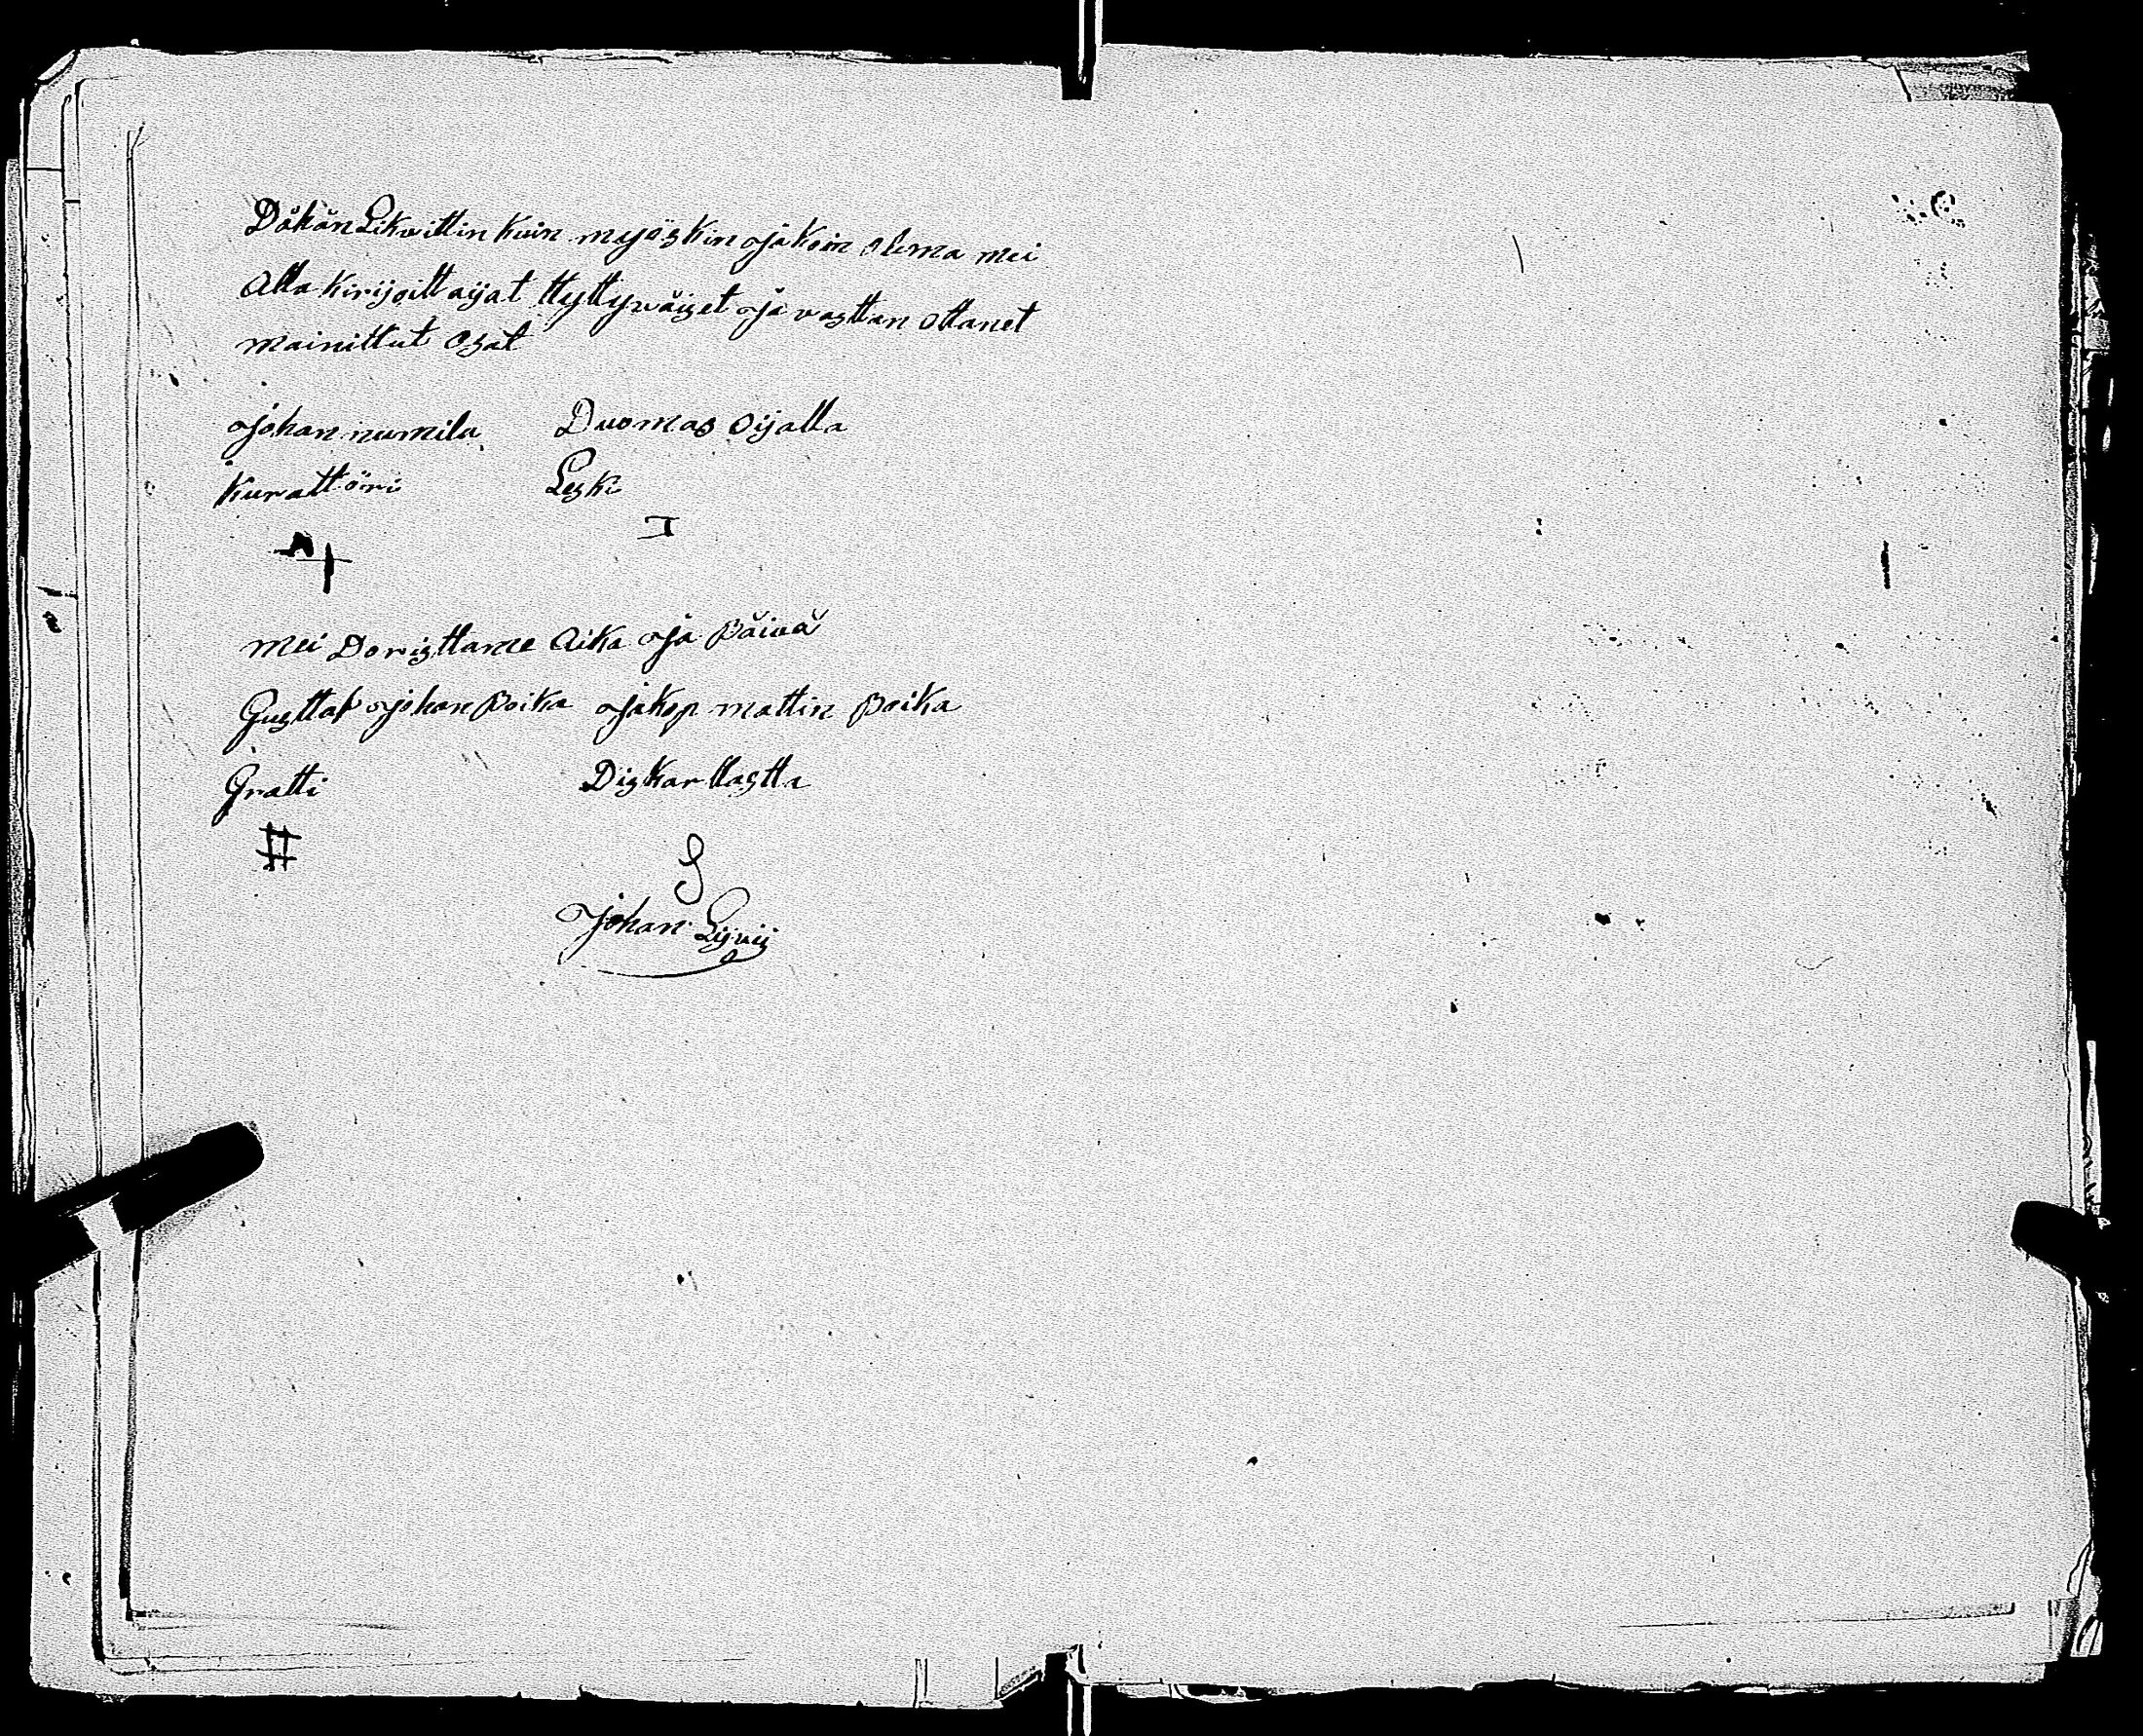 Dåhän Likwittin kuin myöskin jakoin olema mei
Alla kirijoittaijat ttyttywäiset ja vasttan ottanet
mainittut osat
johan numila Duomas Oijalla
kurattöri Leski
mei Doristtame Aika ja Päivä
Gusttaf johan Poika jakop mattin Poika
Gratti Diskarllastta
S
johan Lijvij